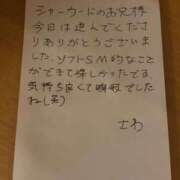 シャーウードのお兄様
今日は遊んでくださ
りありがとうございま
した。ソフトSM的なこと
ができて楽しかったです
気持ち良くて瞬殺でした
ね(笑)
さわ